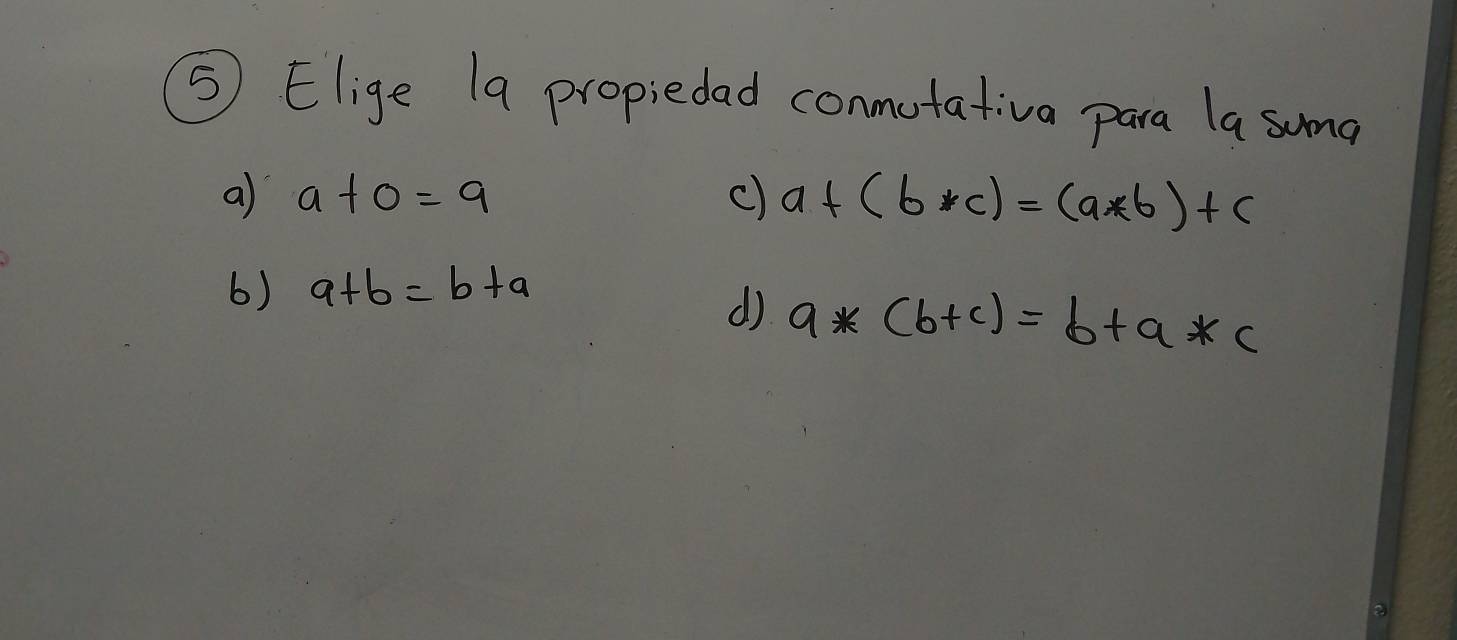 5 Elige la propiedad conmutativa para la suma
a) a+0=a
c) a+(b*c)=(a*b)+c
b) a+b=b+a
d) a*(b+c)=b+a*c